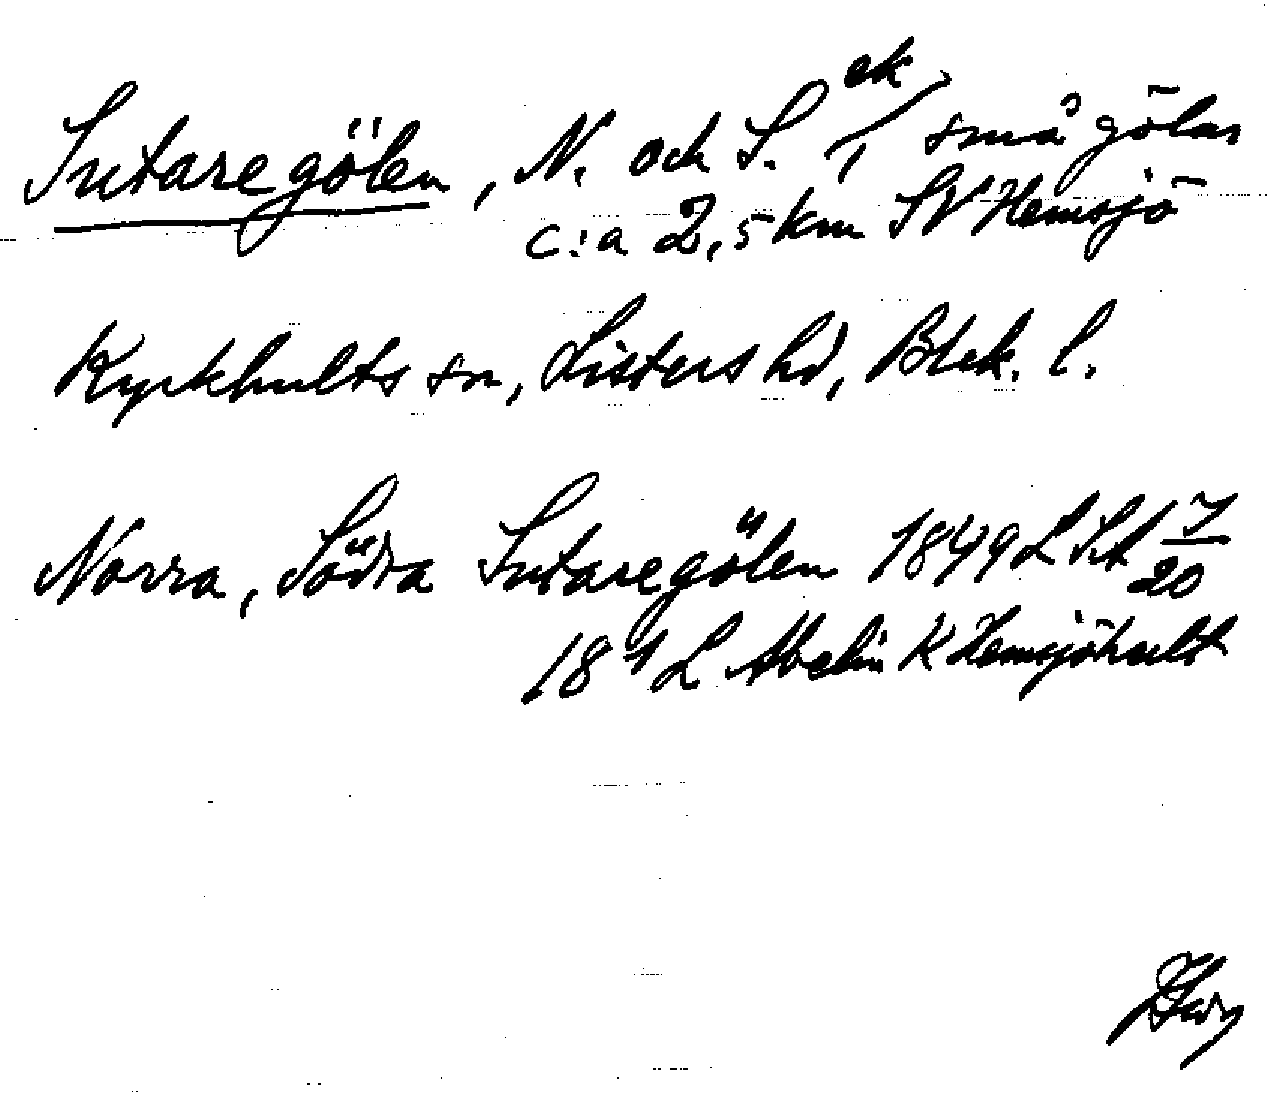 Sutaregölen, N. och S. ek, små gölar
c:a 2,5 km SV Hemsjö
Kyrkhults sn, Listers hd, Blek. l.
Norra, Södra Sutaregölen 1849 L Skt 7/20
18 4 L Abelin K Hemsjöhult